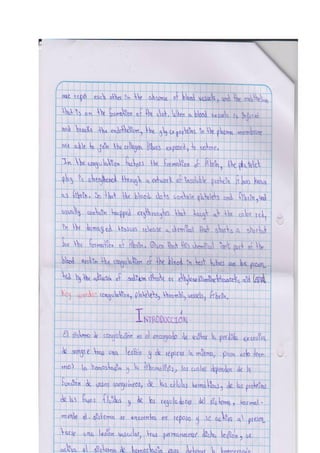 each other in the absence of blood vessels, and the endothelium
that is on the formation of the clot. When a blood vessels is injured
and breaks the endothelium, the glycoproteins in the plasma membrane
are able to join the collagen fibers exposed, to
In the coagulation factors the formation of fibrin, the platelet
plug is strengthened through a network of insoluble protein fibers known
as fibrin. So that the blood clots contain platelets and fibrin, and
usually contain trapped erythrocytes that the color red,
In the damaged tissues release a chemical that starts a shortcut
for the formation of fibrin. Since that this chemical isn't part of the
blood the coagulation of the blood in test tubes can be
ted by the of sodium citrate or
Key words: coagulation, platelets, thrombi, vessels, fibrin.
INTRODUCCIÓN
El sistema de coagulación es el encargado de evitar la perdida excesiva
de sangre tras una lesión y de reparar la misma, para esto
la hemostasia y la fibrinolisis, las cuales dependen de la
función de vasos sanguíneos, de las células hemáticas, de las proteínas
de las fases fluidas y de los reguladores del sistema, normal-
mente el sistema se encuentra en reposo y se activa al presen
tarse una lesión vascular, tras permanecer dicha lesión, se
activa el sistema de hemostasia para detener la hemorragia